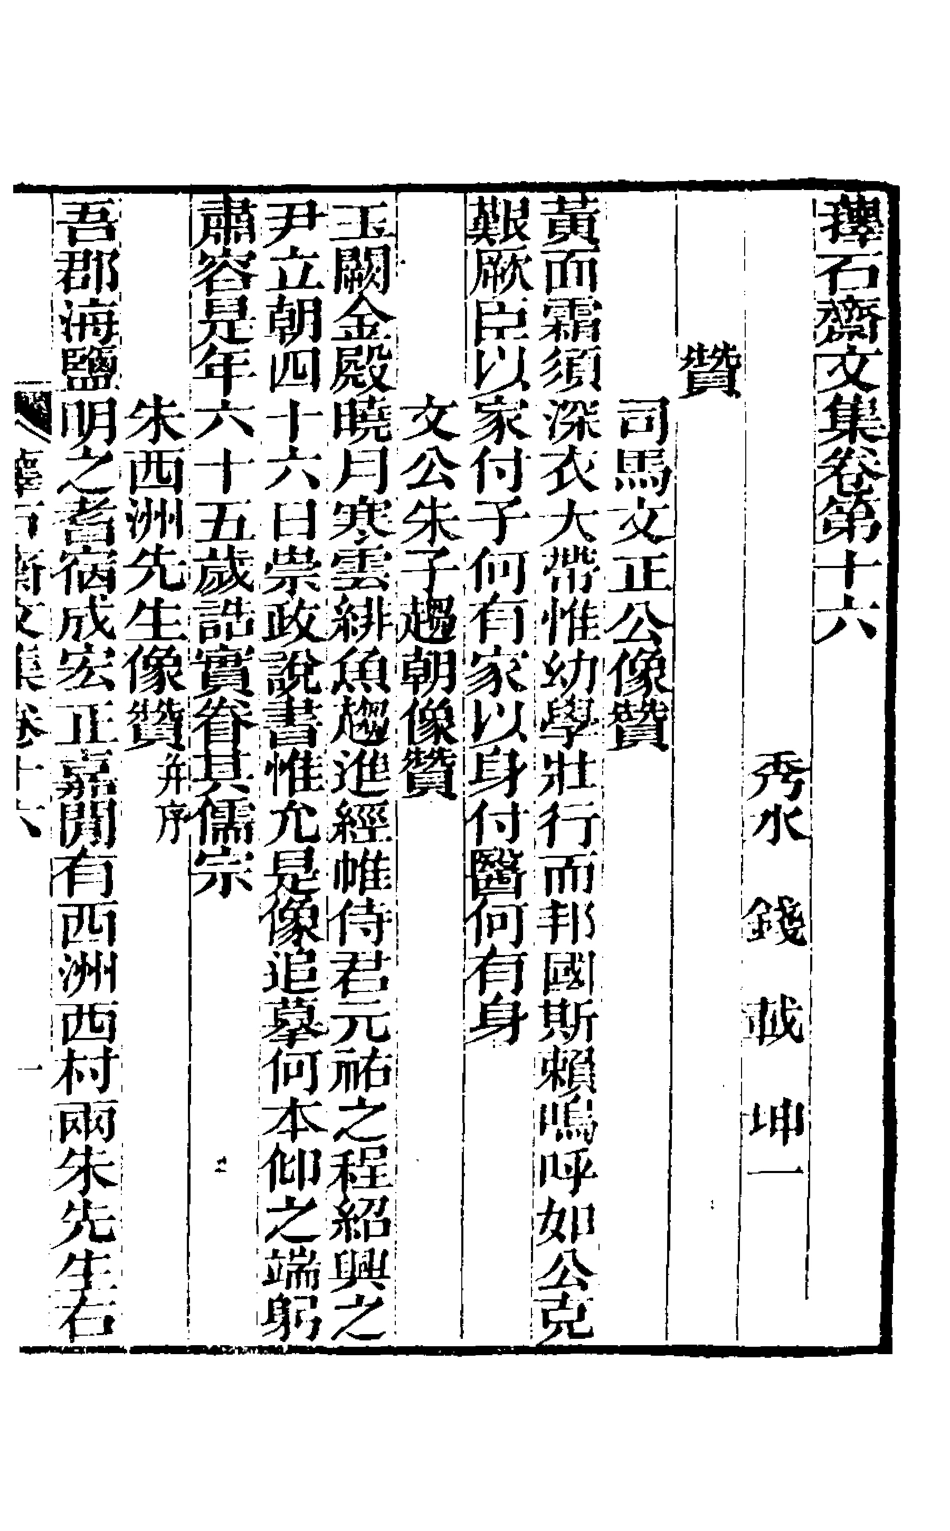 蘀石齋文集卷第十六
秀水 錢載 坤一
贊
司馬文正公像贊
黃面霜須深衣大帶惟幼學壯行而邦國斯賴嗚呼如公克
艱厥臣以家付子何有家以身付醫何有身
文公朱子趨朝像贊
玉闕金殿曉月寒雲緋魚趨進經帷侍君元祐之程紹興之
尹立朝四十六日崇政說書惟允是像追摹何本仰之端躬
肅容是年六十五歲誥實眷其儒宗
朱西洲先生像贊并序
吾郡海鹽明之耆宿成宏正嘉閒有西洲西村兩朱先生右
蘀石齋文集卷十六 一